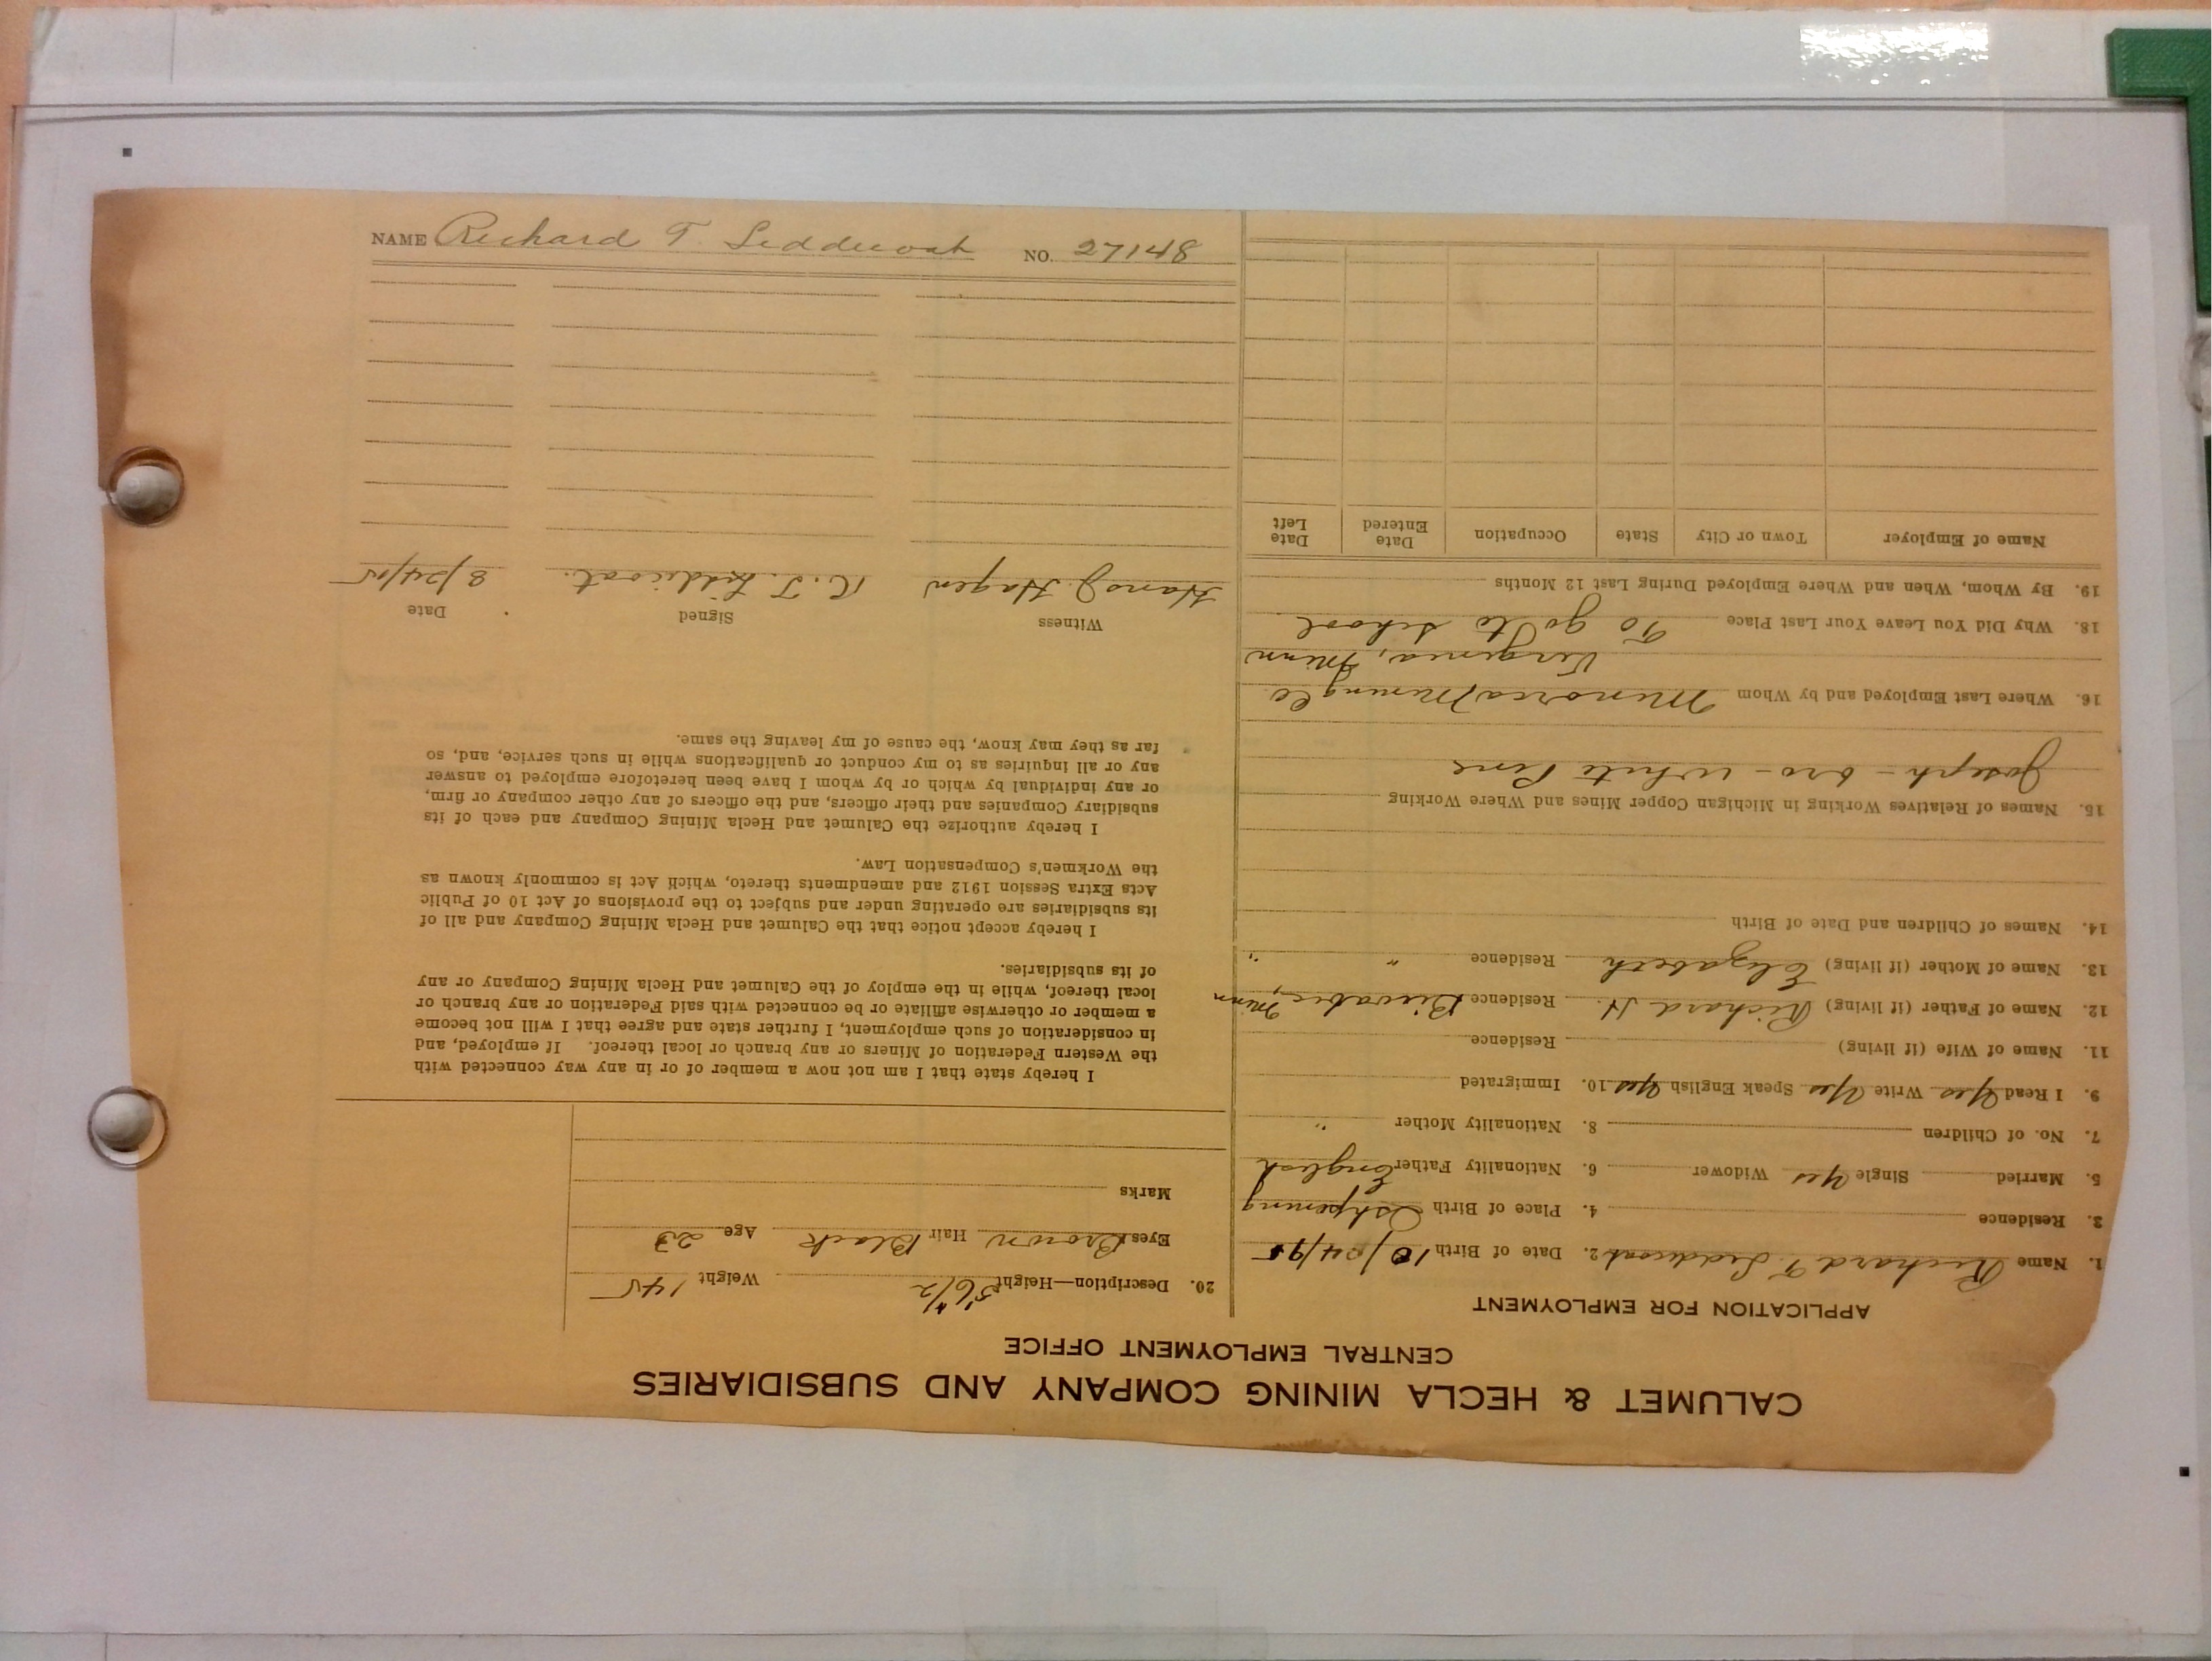 CALUMET & HECLA MINING COMPANY AND SUBSIDIARIES
CENTRAL EMPLOYMENT OFFICE
APPLICATION FOR EMPLOYMENT
1. Name Richard T. Liddicoat 2. Date of Birth 10/24/95
3. Residence 4. Place of Birth Ishpeming
5. Married Single Yes Widower 6. Nationality Father English
7. No. of Children 8. Nationality Mother "
9. I Read Yes Write Yes Speak English Yes 10. Immigrated
11. Name of Wife (if living) Residence
12. Name of Father (if living) Richard H. Residence Biwabic, Minn
13. Name of Mother (if living) Elizabeth Residence " "
14. Names of Children and Date of Birth
15. Names of Relatives Working in Michigan Copper Mines and Where Working
Joseph - bro - White Pine
16. Where Last Employed and by Whom Minorca Mining Co
Virginia, Minn
18. Why Did You Leave Your Last Place To go to school
19. By Whom, When and Where Employed During Last 12 Months
Name of Employer Town or City State Occupation Date Entered Date Left
20. Description—Height 5'6 1/2" Weight 145
Eyes Brown Hair Black Age 23
Marks
I hereby state that I am not now a member of or in any way connected with
the Western Federation of Miners or any branch or local thereof. If employed, and
in consideration of such employment, I further state and agree that I will not become
a member or otherwise affiliate or be connected with said Federation or any branch or
local thereof, while in the employ of the Calumet and Hecla Mining Company or any
of its subsidiaries.
I hereby accept notice that the Calumet and Hecla Mining Company and all of
its subsidiaries are operating under and subject to the provisions of Act 10 of Public
Acts Extra Session 1912 and amendments thereto, which Act is commonly known as
the Workmen's Compensation Law.
I hereby authorize the Calumet and Hecla Mining Company and each of its
subsidiary Companies and their officers, and the officers of any other company or firm,
or any individual by which or by whom I have been heretofore employed to answer
any or all inquiries as to my conduct or qualifications while in such service, and, so
far as they may know, the cause of my leaving the same.
Witness Signed Date
Hans J. Hagen R. T. Liddicoat. 8/24/15
NAME Richard T. Liddicoat NO. 27148